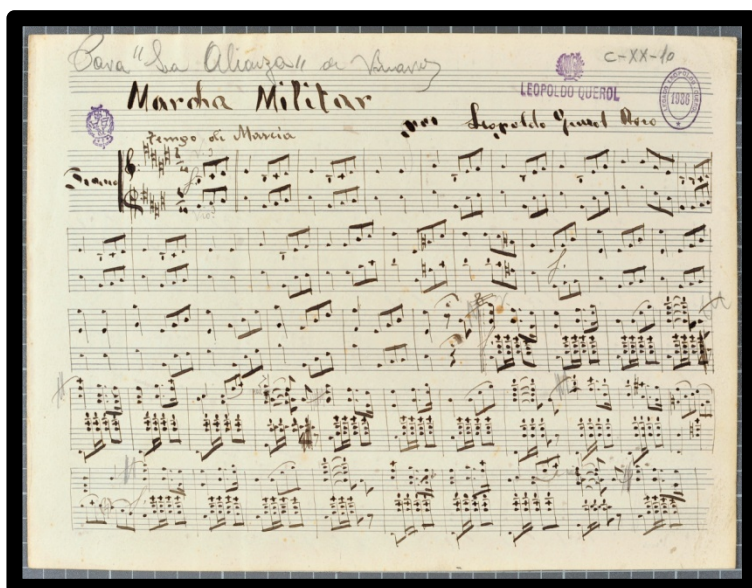 Para "La Alianza" de Vinaroz
C-XX-10
LEOPOLDO QUEROL
LEGADO LEOPOLDO QUEROL
1986
Marcha Militar
por Leopoldo Querol Roso
tempo di Marcia
Piano